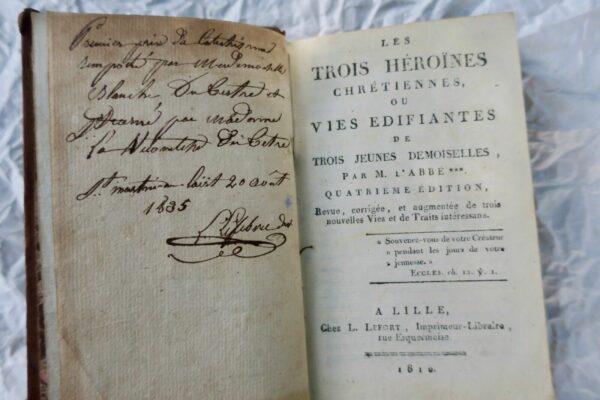 Premier prix de Catéchisme
remporté par Mademoiselle
Blanche Du Tertre et
donné par Madame
la Vicomtesse Du Tertre
St martin au laërt 20 août
1835
LES
TROIS HÉROÏNES
CHRÉTIENNES,
OU
VIES EDIFIANTES
DE
TROIS JEUNES DEMOISELLES,
PAR M. L'ABBÉ ***.
QUATRIEME ÉDITION,
Revue, corrigée, et augmentée de trois
nouvelles Vies et de Traits intéressans.
« Souvenez-vous de votre Créateur
» pendant les jours de votre
» jeunesse. »
ECCLES. ch. 12. ỳ. 1.
A LILLE,
Chez L. LEFORT, Imprimeur-Libraire,
rue Esquermoise.
1810.